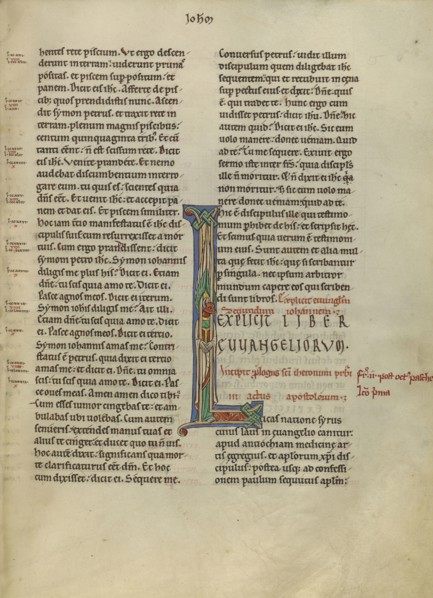 Johan
hentes rete piscium. Vt ergo descen
derunt in terram: uiderunt prunas
positas. et piscem suppositum. et
panem. Dicit eis ihc. Afferte de pis
cib; quos prendidistis nunc. Ascen
dit symon petrus. et traxit rete in
terram. plenum magnis piscibus.
centum quinquaginta trib;. Et cū
tanti eēnt: n̄ est scissum rete. Dicit
eis ihc. Venite prandete. Et nemo
audebat discumbentium interro
gare eum. tu quis es: scientes quia
dn̄s eēt. Et uenit ihc. et accepit pa
nem et dat eis. Et piscem similiter.
hoc iam tcio manifestatus ē ihc di
scipulis suis cum resurrexisset a mor
tuis. Cum ergo prandissent: dicit
symoni petro ihc. Symon iohannis
diligis me plus his? Dicit ei. Etiam
dn̄e. tu scis quia amo te. Dicit ei.
Pasce agnos meos. Dicit ei iterum.
Symon iohis diligis me? Ait illi.
Etiam dn̄e. tu scis quia amo te. Dicit
ei. Pasce agnos meos. Dicit ei tercio.
Symon iohannis amas me? Contri
status ē petrus. quia dixit ei tercio
amas me. et dicit ei. Dn̄e. tu omnia
scis. tu scis quia amo te. Dicit ei. Pas
ce oues meas. Amen amen dico tibi.
Cum esses iunior cingebas te. et am
bulabas ubi uolebas. Cum autem
senueris: extendes manus tuas et
alius te cinget. et ducet quo tu n̄ uis.
hoc autē dixit: significans qua mor
te clarificaturus eēt dm̄. Et hoc
cum dixisset: dicit ei. Sequere me.
Conuersus petrus: uidit illum
discipulum quem diligebat ihc
sequentem. qui et recubuit in cena
sup pectus eius et dixit. Dn̄e. quis
ē qui tradet te. Hunc ergo cum
uidisset petrus: dicit ihu. Dn̄e. hic
autem quid? Dicit ei ihc. Sic eum
uolo manere donec ueniam. Quid
ad te? Tu me sequere. Exiuit ergo
sermo iste inter frs. quia discipls
ille n̄ moritur. Et n̄ dixit ei ihc quia
non moritur. S; sic eum uolo ma
nere donec ueniam: quid ad te.
Hic ē discipulus ille qui testimo
nium phibet de his. et scripsit hec.
Et scimus quia uerum ē testimoni
um eius. Sunt autem et alia mul
ta que fecit ihc. que si scribantur
p singula. nec ipsum arbitror
mundum capere eos qui scriben
di sunt libros. Explicit euuglm̄
secundum iohannem.
EXPLICIT LIBER
EUUANGELIORUM.
Incipit plogus sc̄i iheronimi prbi
in actus apostolorum.
Lucas natione syrus
cuius laus in euangelio canitur.
apud antiochiam medicine ar
tis egregius. et aplorum xp̄i dis
cipulus. postea usq; ad confessi
onem paulum secutus aplm̄.